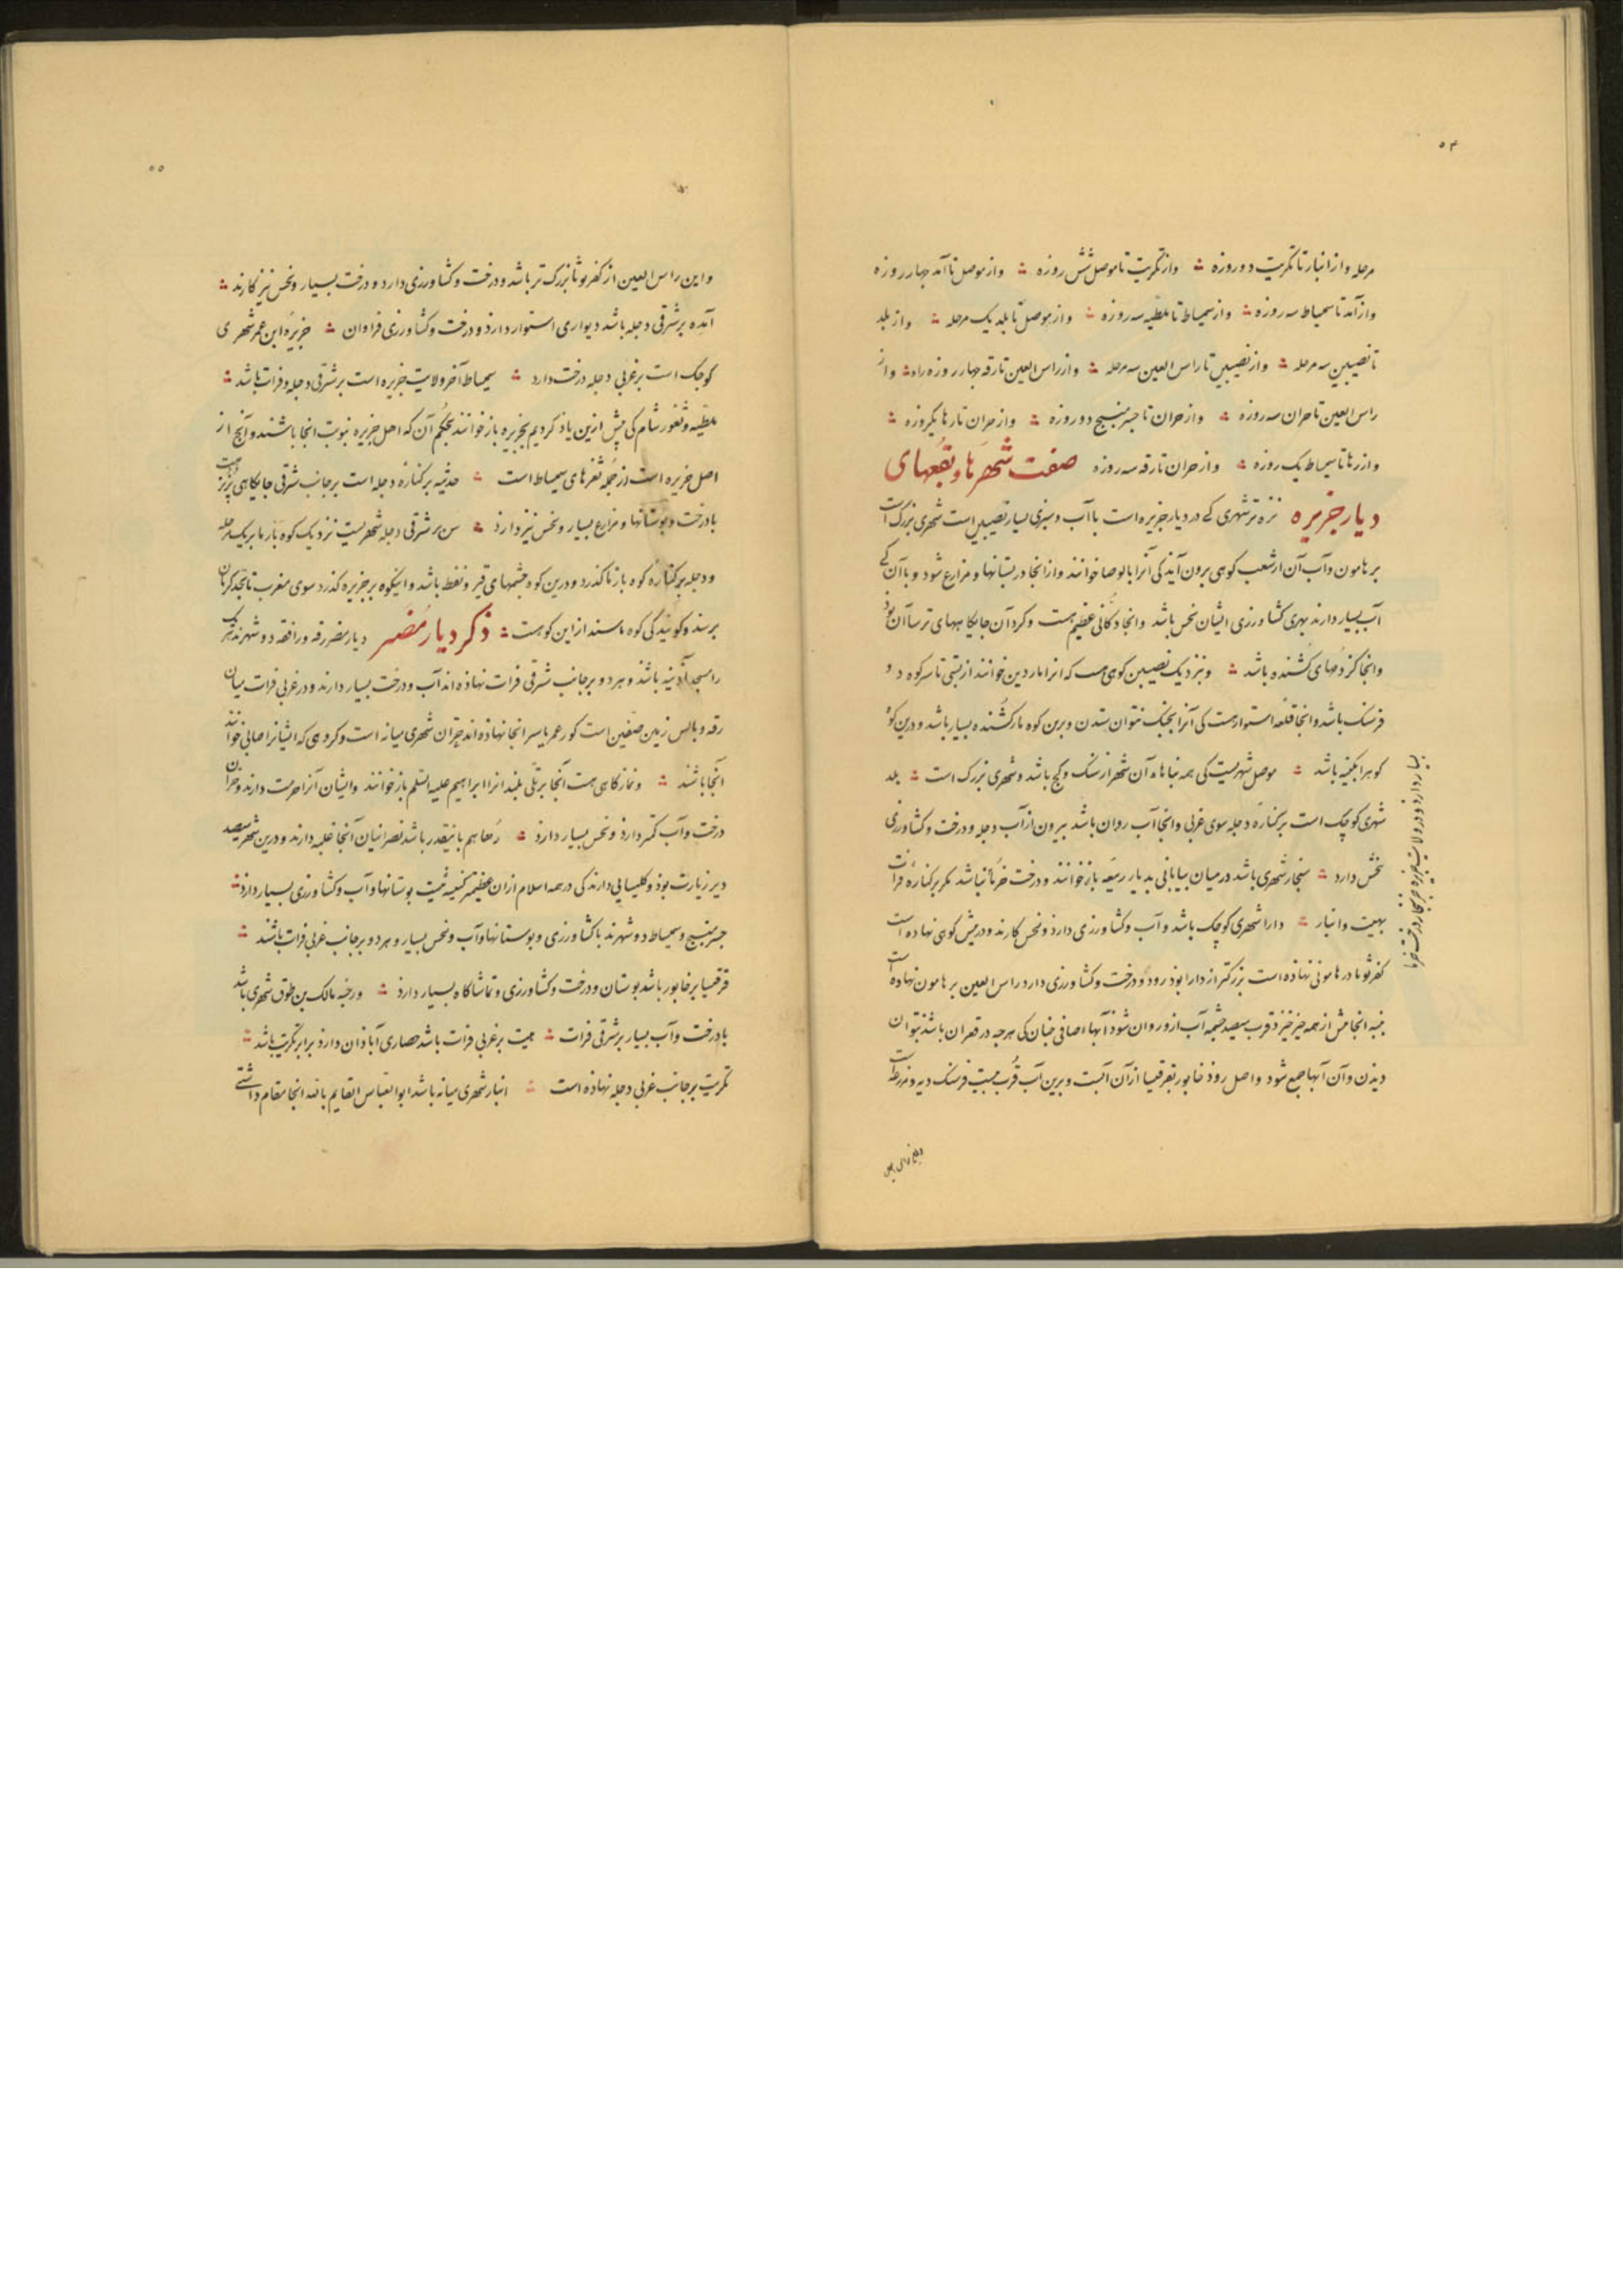 ۵۴
مرحله و از انبار تا تکریت دو روزه ؞ و از تکریت تا موصل شش روزه ؞ و از موصل تا آمد چهار روزه
و از آمد تا سمیساط سه روزه ؞ و از سمیساط تا ملطیه سه روزه ؞ و از موصل تا بلد یک مرحله ؞ و از بلد
تا نصیبین سه مرحله ؞ و از نصیبین تا راس العین سه مرحله ؞ و از راس العین تا رقه چهار روزه راه ؞ و از
راس العین تا حران سه روزه ؞ و از حران تا جسر منبج دو روزه ؞ و از حران تا رها یکروزه ؞
و از رها تا سمیساط یک روزه ؞ و از حران تا رقه سه روزه صفت شهرها و بقعهای
دیار جزیره نزه تر شهری کی در دیار جزیره است با آب و سبزی بسیار نصیبین است شهری بزرگ است
بر هامون و آب آن از شعب کوهی برون آید کی آنرا بالوصا خوانند و از انجا در بستانها و مزارع شود و با آن کی
آب بسیار دارند بهری کشاورزی ایشان نخس باشد و انجا دکانی عظیم هست و کرد آن جایکاههای ترساآن بوذ
و انجا کژدمهای کشنده باشد ؞ و بنزدیک نصیبین کوهی هست که انرا ماردین خوانند از بستی تا سر کوه دو
فرسنک باشد و انجا قلعه استوار هست کی آنرا بجنک نتوان ستدن و برین کوه مار کشنده بسیار باشد و درین کوه
کوهر ابکینه باشد ؞ موصل شهریست کی همه بناهاء آن شهر از سنک و کج باشد و شهری بزرک است ؞ بلد
شهری کوچک است بر کناره دجله سوی غربی و انجا آب روان باشد بیرون از آب دجله و درخت و کشاورزی
نخس دارد ؞ سنجار شهری باشد در میان بیابانی بدیار ربیعه باز خوانند و درخت خرما نباشد مکر بر کناره فرات
بهیت و انبار ؞ دارا شهری کوچک باشد و آب و کشاورزی دارد و نخس کارند و در پیش کوهی نهاده است
کفرتوثا در هامونی نهاذه است بزرکتر از دارا بوذ رود و درخت و کشاورزی دارد راس العین بر هامون نهاده است
پنبه انجا بیش از همه چیز خیزد قرب سیصد چشمه آب ازو روان شوذ آبها صافی چنان کی هرچه در قعر آن باشد بتوان
دیذن و آن آبها جمع شود و اصل روذ خابور بقرقیسیا از آن آبست و برین آب قرب بیست فرسنک دیه و مزرعه است
۵۵
و این راس العین از کفرتوثا بزرک تر باشد و درخت و کشاورزی دارد و درخت بسیار و نخس نیز کارند ؞
آمد بر شرقی دجله باشد دیواری استوار دارد و درخت و کشاورزی فراوان ؞ جزیره ابن عمر شهری
کوچک است بر غربی دجله درخت دارد ؞ سمیساط آخر ولایت جزیره است بر شرقی دجله و فرات باشد ؞
ملطیه و ثغور شام کی پیش ازین یاد کردیم بجزیره باز خوانند بحکم آن که اهل جزیره بنوبت انجا باشند و آنچ از
اصل جزیره است از جمله ثغرهای سمیساط است ؞ حدیثه بر کناره دجله است بر جانب شرقی جایکاهی پر نزهت
با درخت و بوستانها و مزارع بسیار و نخس نیز دارد ؞ سن بر شرقی دجله شهریست نزدیک کوه بارما بر یک مرحله
و دجله بر کناره کوه بارما کذرد و درین کوه چشمهای قیر و نفط باشد و اینکوه بر جزیره کذرد سوی مغرب تا بحد کرمان
برسد و کویند کی کوه ماسبند از این کوهست ؞ ذکر دیار مضر دیار مضر رقه و رافقه دو شهرند هر یک
را مسجد آذینه باشد و هر دو بر جانب شرقی فرات نهاذه اند آب و درخت بسیار دارند و در غربی فرات میان
رقه و بالس زمین صفین است کور عمر یاسر انجا نهاذه اند حران شهری میانه است و کروهی که ایشانرا صابی خوانند
انجا باشند ؞ و نمازکاهی هست آنجا بر تلی بلند انرا ابراهیم علیه السلم باز خوانند و ایشان آنرا حرمت دارند و حران
درخت و آب کمتر دارد و نخس بسیار دارد ؞ رها هم باینقدر باشد نصرانیان آنجا غلبه دارند و درین شهر سیصد
دیر زیارت بوذ و کلیسایی دارند کی در همه اسلام از ان عظیم تر کنیسه نیست بوستانها و آب و کشاورزی بسیار دارد ؞
جسر منبج و سمیساط دو شهرند با کشاورزی و بوستانها و آب و نخس بسیار و هر دو بر جانب غربی فرات باشند ؞
قرقیسیا بر خابور باشد بوستان و درخت و کشاورزی و تماشاکاه بسیار دارد ؞ و رحبه مالک بن طوق شهری باشد
با درخت و آب بسیار بر شرقی فرات ؞ هیت بر غربی فرات باشد حصاری آباذان دارد برابر تکریت باشد ؞
تکریت بر جانب غربی دجله نهاذه است ؞ انبار شهری میانه باشد ابو العباس القایم بالله انجا مقام داشتی